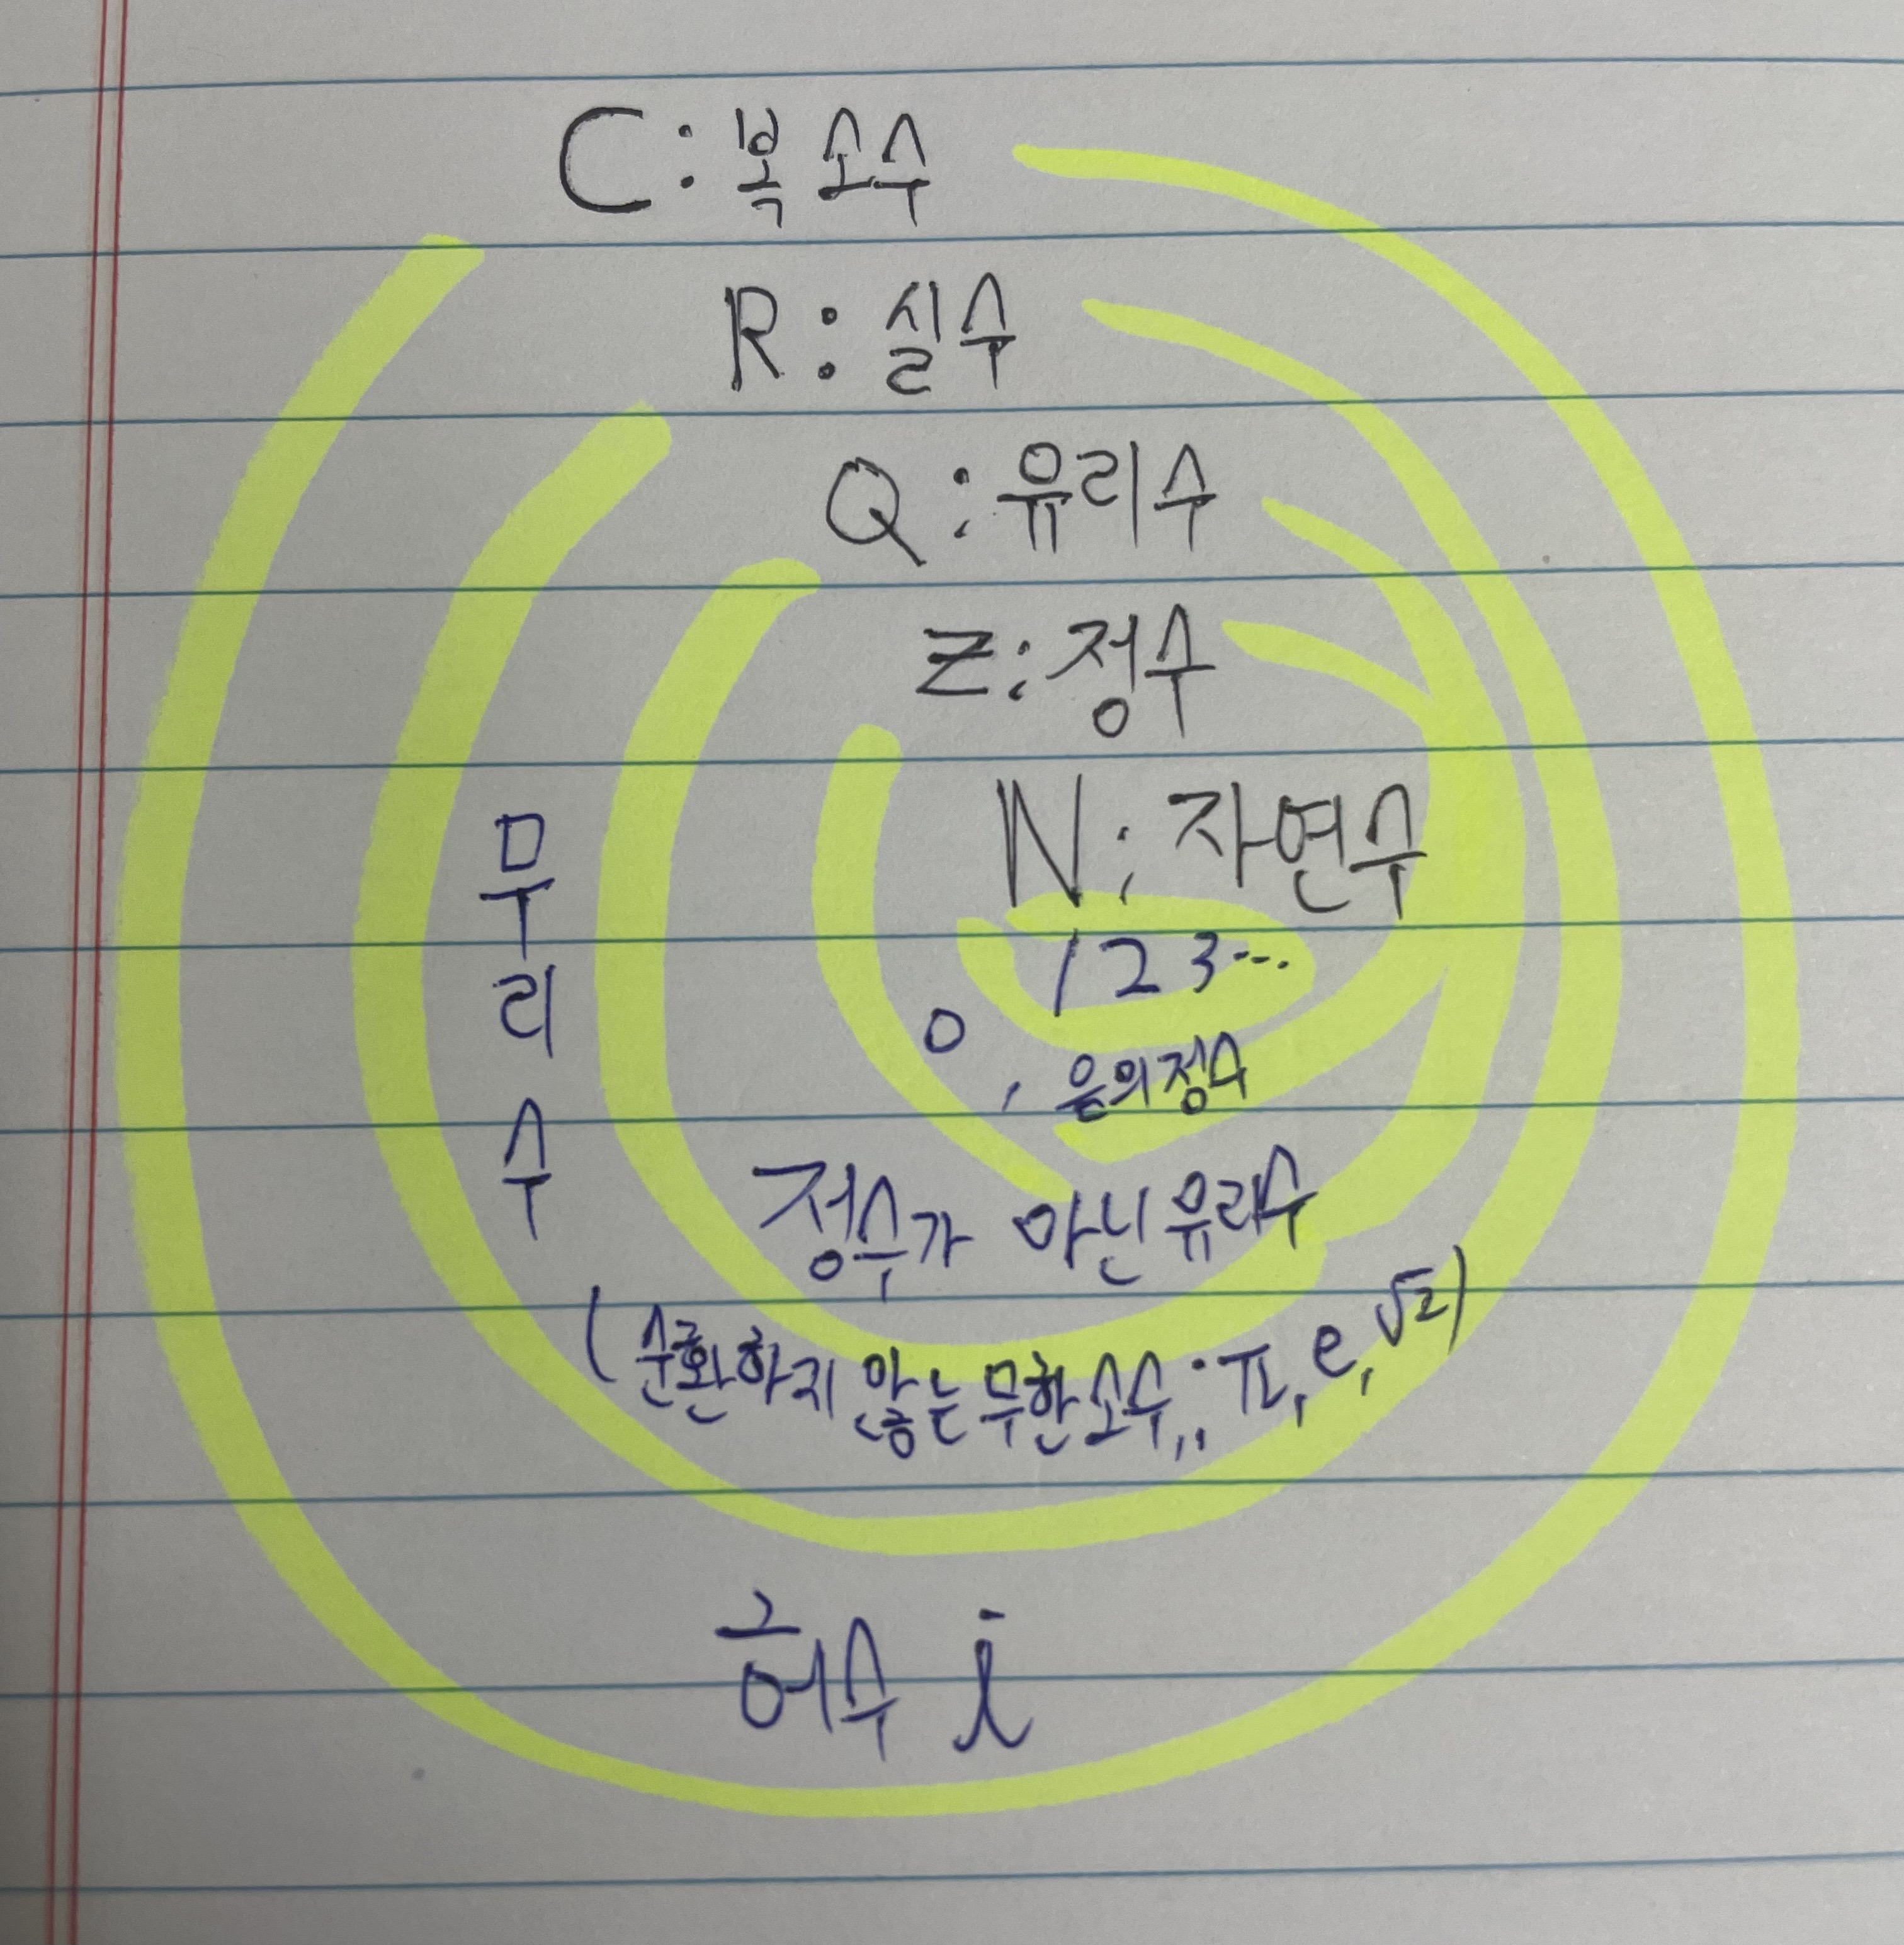 C: 복소수
R: 실수
Q: 유리수
Z: 정수
N: 자연수
1 2 3 ...
0, 음의정수
무리수
정수가 아닌 유리수
(순환하지 않는 무한소수,: π, e, √2)
허수 i